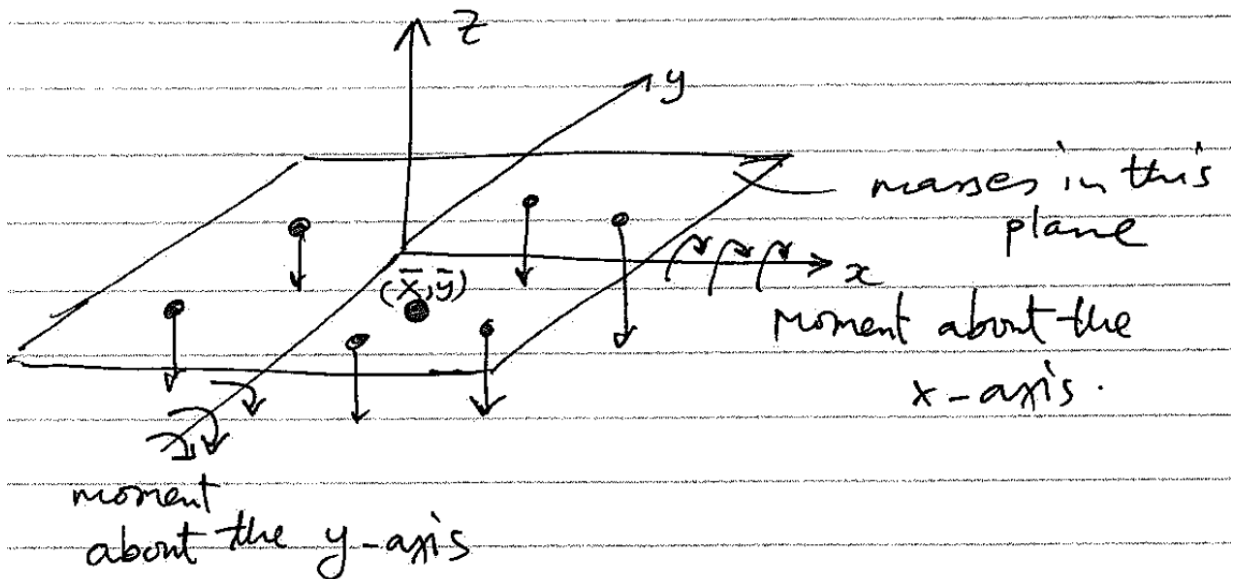 z
y
masses in this
plane
x
(x̄, ȳ)
Moment about the
x-axis.
moment
about the y-axis